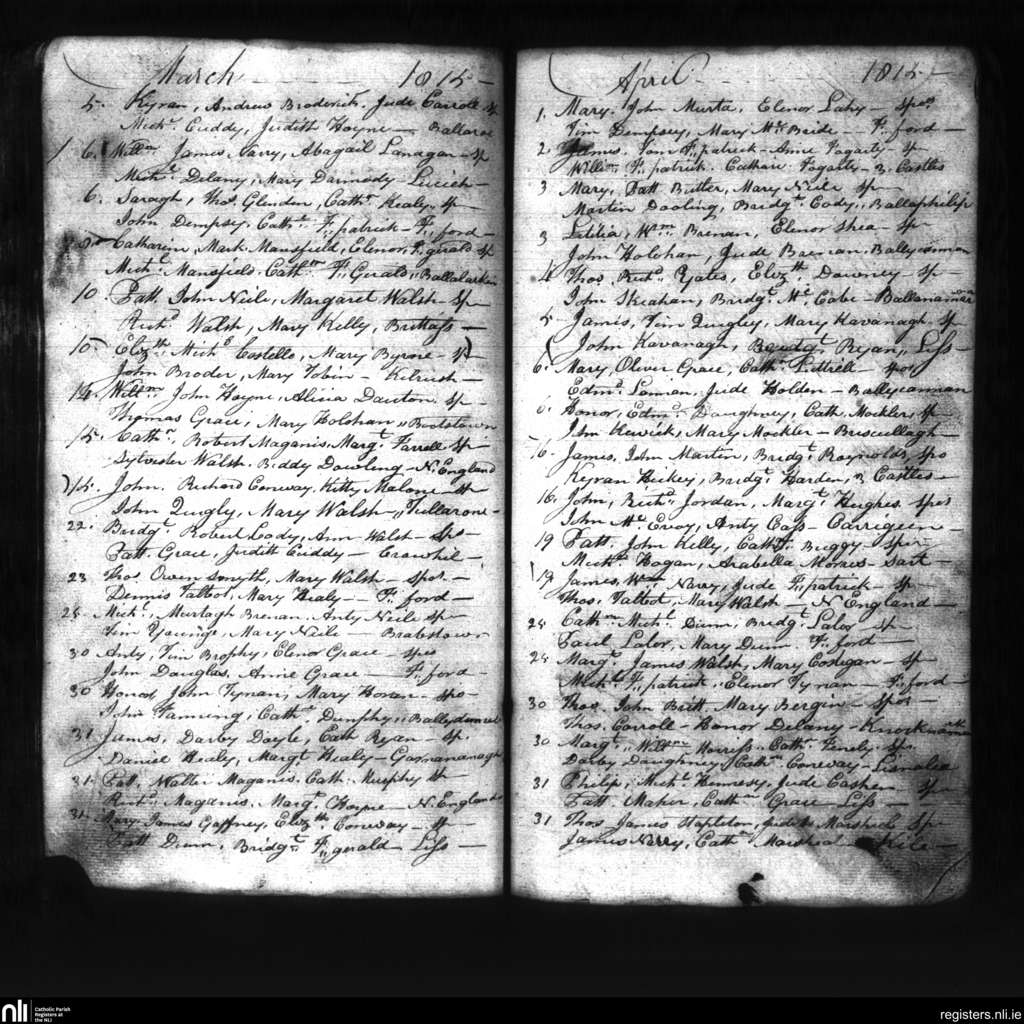 March 1815
5. Kyran, Andrew Broderick, Jude Carroll sp
Michl. Cuddy, Judith Hoyne — Ballaroe
6. Willm James Navry, Abagail Lanagan — Sp
Michl. Delany, Mary Darmody
6. Saragh, Thos. Glendon, Cathn. Kealy. sp
John Dempsey, Cathn. F,,patrick — F,, ford —
8 Catharin, Mark Mansfield, Elenor F,,gerald sp
Michl. Mansfield, Cathn F,,Gerald, Ballalarkin
10. Patt, John Neile, Margaret Walsh — Sp
Richd. Walsh, Mary Kelly, Brittass —
10. Elizth. Michl Costello, Mary Byrne — sp
John Broder, Mary Tobin — Kilrush —
14. Willm John Hoyne, Alicia Dauton. sp —
Thomas Grace, Mary Holohan, Bootstown
15. Cathn., Robert Maganis, Margt. Farrell Sp
Sylvester Walsh. Biddy Dowling — N. England
15. John, Richard Conway, Kitty Malone — sp
John Quigly, Mary Walsh — Tullaroan
22. Bridgt. Robert Cody, Ann Walsh Sps —
Patt. Grace, Judith Cuddy — Crowhil —
23. Thos Owen Smyth, Mary Walsh — spos. —
Dennis Talbot, Mary Healy — F, ford —
25 Michl., Murtagh Brenan, Anty Neile sp —
Tim Younge, Mary Neile — Brabstown
30 Anty, Tim Brophy, Elenor Grace — spos
John Douglas, Anne Grace — F, ford —
30 Honor John Tynan, Mary Horan — spo —
John Fanning, Cathn. Dunphy,, Ballydaniel
31 James, Darby Doyle, Cath Ryan — Sp.
Daniel Healy, Margt Healy — Gornanagh
31. Patt, Walter Maganis, Cath. Murphy sp
Richd. Maganis, Margt. Hoyne — N. England
31. Mary, James Gaffney, Elizth. Conway — sp —
Patt Dunn, Bridgt. F,,gerald Liss —
April 1815
1. Mary, John Murta, Elenor Lahy — spos
Tim Dempsey, Mary Mc.Bride — F,, ford —
2. James, Tim F,,patrick — Anne Fogarty — sp
Willm. F,,patrick, Catharine Fogarty — 3, Castles
3 Mary, Patt Butler, Mary Neile sp —
Martin Dooling, Bridgt. Cody, Ballaphilip
3 Letilia, Wm. Brenan, Elenor Shea — sp
John Holohan, Jude Brenan. Ballycanman
4 Thos. Richd. Yates, Elizth. Downey — sp —
John Skeahan, Bridgt. Mc.Cabe — Ballanamara
5 — James, Tim Quigley, Mary Kavanagh, sp
John Kavanagh, Bridgt. Ryan,, Liss —
6. Mary, Oliver Grace, Cathn. Luttrell — spos
Edmd. Lennon, Jude Holden — Ballycanman
6. Honor, Edmd. Daughney, Cath. Mockler, sp
John Hewick, Mary Mockler — Briscullagh —
16. James, John Martin, Bridgt. Raynolds, spo
Kyran Hickey, Bridgt. Harden, 3, Castles —
16. John, Richd. Jordan, Margt. Hughes spos
John Mc.Evoy, Anty Cass — Carrigeen —
19 Patt John Kelly, Cathn. Buggy — spos
Michl. Hogan, Arabella Morris — Sart —
19 James, Wm Navy, Jude F,,patrick — sp —
Thos. Talbot, Mary Walsh — N. England —
25 Cathn. Michl. Dunn, Bridgt. Lalor sp —
Paul Lalor, Mary Dunn F,, ford —
25 Margt. James Walsh, Mary Costigan — sp —
Michl. F,,patrick,, Elenor Tynan — F, ford —
30 Thos. John Britt, Mary Bergin — spos —
Thos. Carroll — Honor Delany Knocknamuck
30 Margt., Willm Morress. Cathn. Fenely. Sp.
Darby Daughney, Cathn Conway — Lisnalea
31 Philip, Michl. Hennesy, Jude Cashen sp —
Patt Maher, Cathn Grace Liss —
31 Thos James Stapleton, Judith Marshed Sp —
James Navy, Cathn Marshed
nli Catholic Parish Registers at the NLI
registers.nli.ie